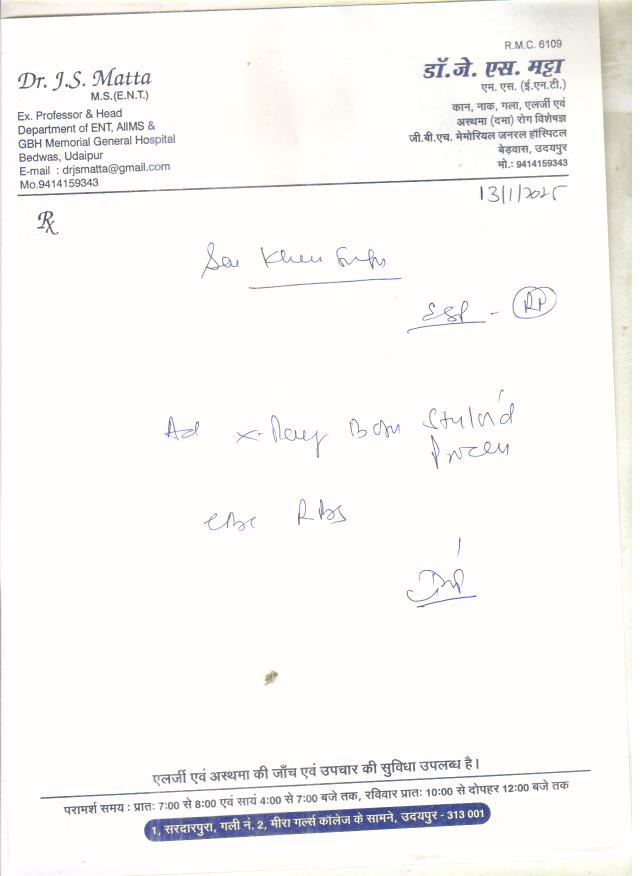 R.M.C. 6109
Dr. J.S. Matta
M.S.(E.N.T.)
Ex. Professor & Head
Department of ENT, AIIMS &
GBH Memorial General Hospital
Bedwas, Udaipur
E-mail : drjsmatta@gmail.com
Mo.9414159343
डॉ.जे. एस. मट्टा
एम. एस. (ई.एन.टी.)
कान, नाक, गला, एलर्जी एवं
अस्थमा (दमा) रोग विशेषज्ञ
जी.बी.एच. मेमोरियल जनरल हॉस्पिटल
बेड़वास, उदयपुर
मो.: 9414159343
13/1/2025
Rx
Ad X-Ray Both Styloid
Process
CBC RBS
एलर्जी एवं अस्थमा की जाँच एवं उपचार की सुविधा उपलब्ध है।
परामर्श समय : प्रातः 7:00 से 8:00 एवं सायं 4:00 से 7:00 बजे तक, रविवार प्रातः 10:00 से दोपहर 12:00 बजे तक
1, सरदारपुरा, गली नं. 2, मीरा गर्ल्स कॉलेज के सामने, उदयपुर - 313 001